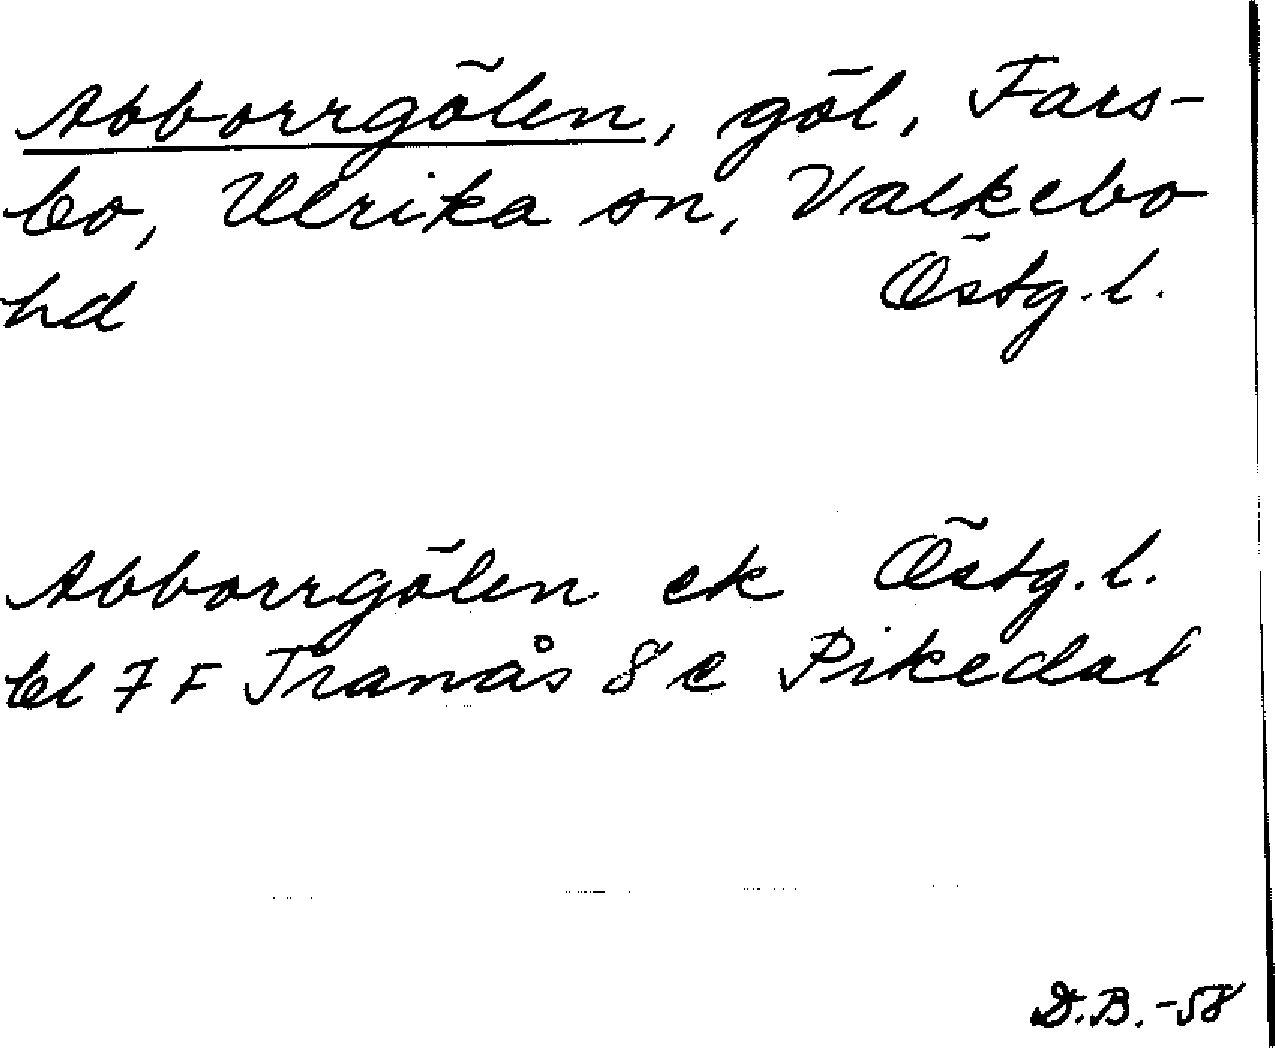 Abborrgölen, göl, Fars-
bo, Ulrika sn, Valkebo
hd Östg.l.
Abborrgölen ek Östg.l.
bl 7 F Tranås 8 e Pikedal
D.B.-58